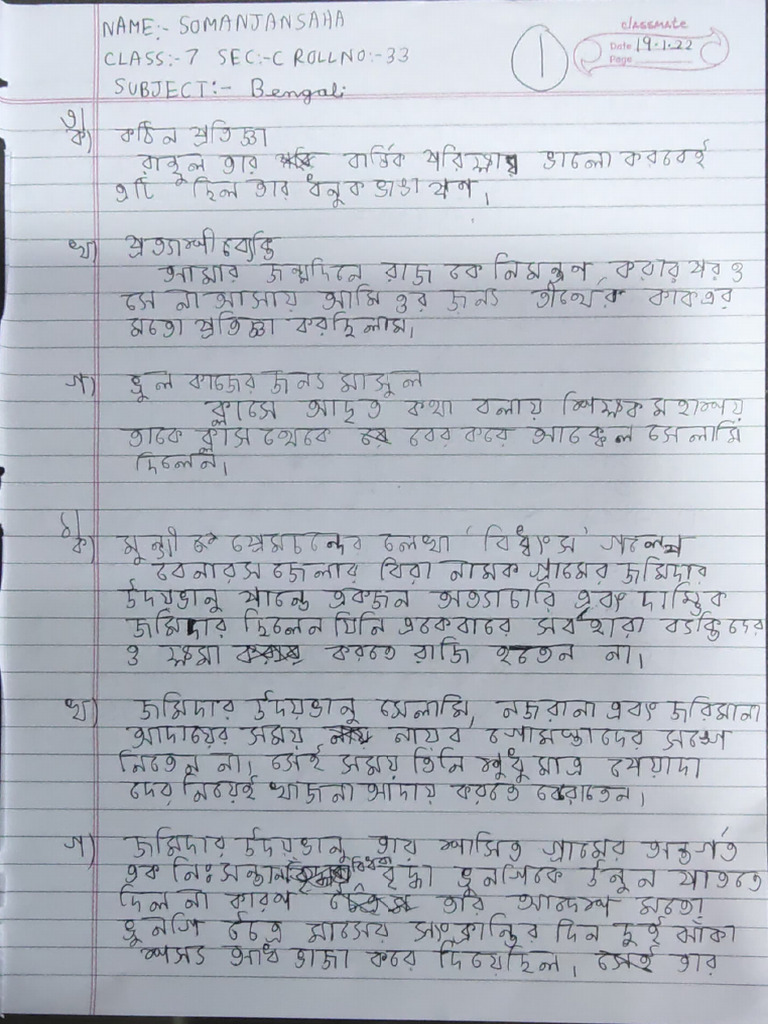 NAME:- SOMANJANSAHA
classmate
CLASS:-7 SEC:-C ROLLNO:-33
1
Date 19.1.22
Page
SUBJECT:- Bengali
৩)
ক) কঠিন প্রতিজ্ঞা
রাহুল তার বার্ষিক পরিক্ষায় ভালো করবেই
এটি ছিল তার ধনুক ভাঙা পণ।
খ) প্রত্যাশী ব্যেক্তি
আমার জন্মদিনে রাজ কে নিমন্ত্রণ করার পর ও
সে না আসায় আমি ওর জন্য তীর্থের কাকএর
মতো প্রতিজ্ঞা করছিলাম।
গ) ভুল কাজের জন্য মাসুল
ক্লাসে আদৃত কথা বলায় শিক্ষক মহাশয়
তাকে ক্লাস থেকে বের করে আক্কেল সেলামি
দিলেন।
৪)
ক) মুন্সী প্রেমচন্দের লেখা 'বিধ্বংস' গল্পে
বেনারস জেলার বিরা নামক গ্রামের জমিদার
উদয়ভানু পান্ডে একজন অত্যাচারি এবং দাম্ভিক
জমিদার ছিলেন যিনি একেবারে সর্বহারা ব্যক্তিদের
ও ক্ষমা করতে রাজি হতেন না।
খ) জমিদার উদয়ভানু সেলামি, নজরানা এবং জরিমানা
আদায়ের সময় নায়েব গোমস্তাদের সঙ্গে
নিতেন না। সেই সময় তিনি শুধু মাত্র পেয়াদা
দের নিয়েই খাজনা আদায় করতে বেরোতেন।
গ) জমিদার উদয়ভানু তার শাসিত গ্রামের অন্তর্গত
এক নিঃসন্তান বিধবা বৃদ্ধা ভুনগিকে উনুন পাততে
দিল না কারণ তার আদেশ মতো
ভুনগি চৈত্র মাসের সংক্রান্তির দিন দুই ঝাঁকা
শস্য আধ ভাজা করে দিয়েছিল। সেই তার